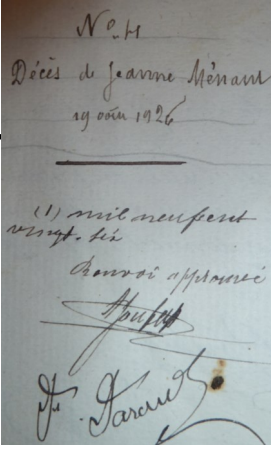 Nº 41
Décès de Jeanne Ménant
19 août 1926
(1) mil neuf cent
vingt-six
Renvoi approuvé